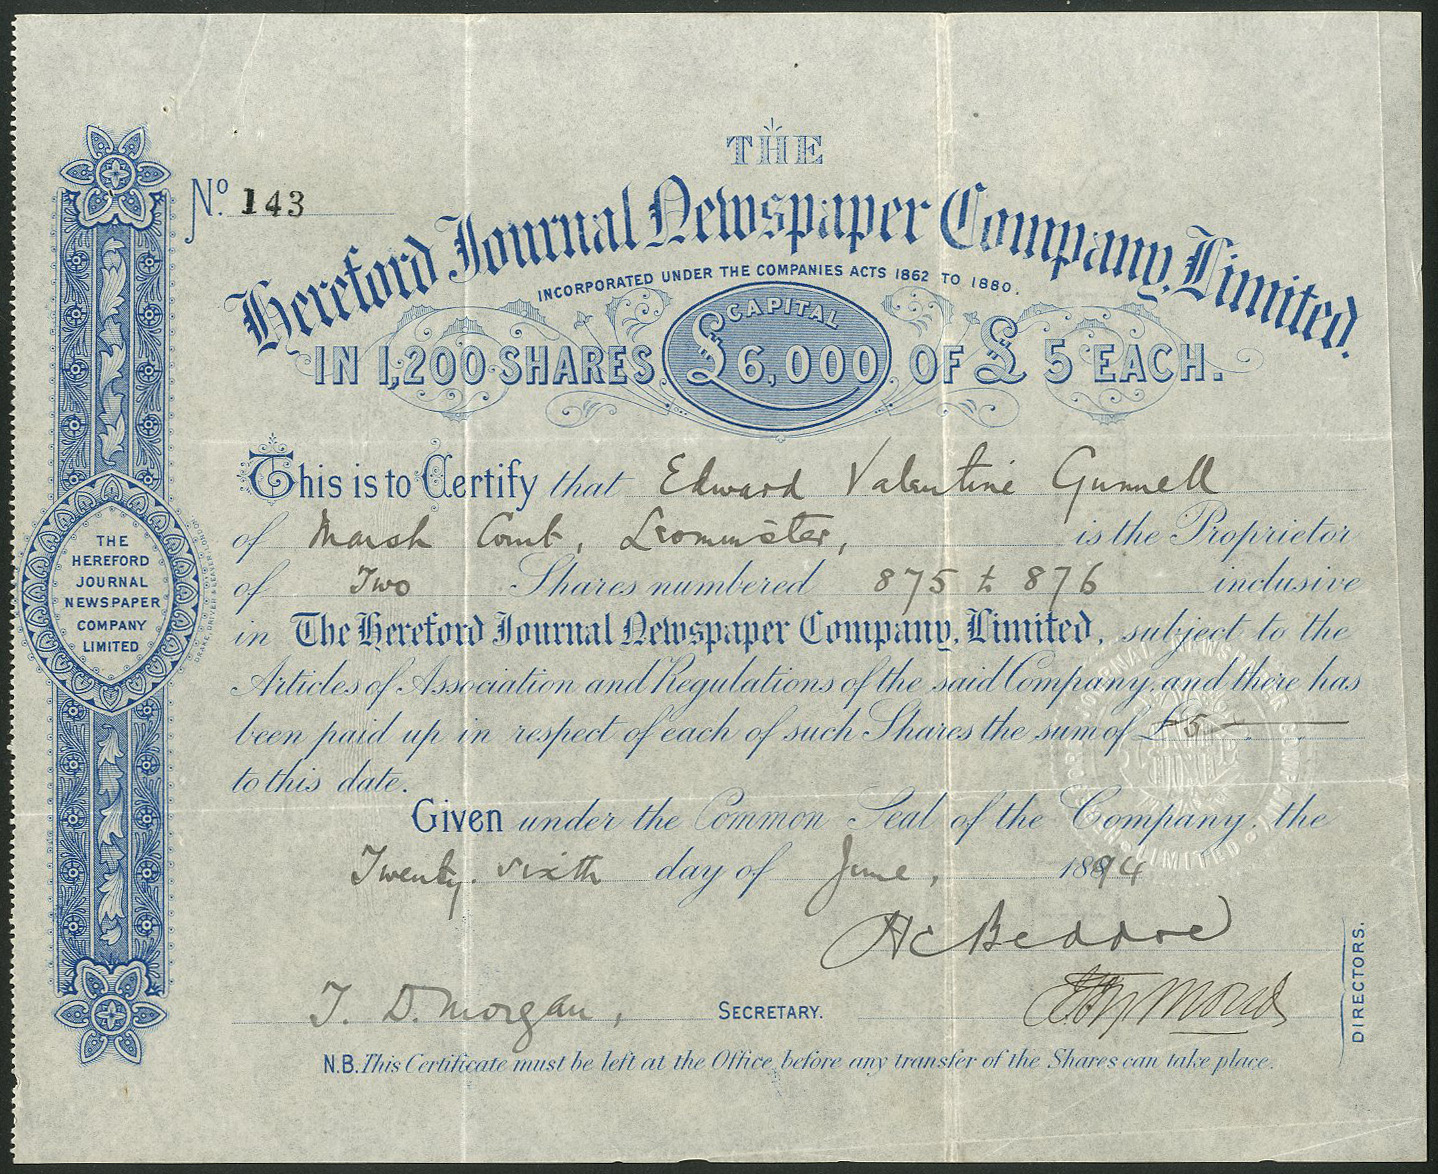 THE
Nº. 143
Hereford Journal Newspaper Company, Limited.
INCORPORATED UNDER THE COMPANIES ACTS 1862 TO 1880.
CAPITAL
IN 1,200 SHARES £6,000 OF £5 EACH.
This is to Certify that Edward Valentine Gunnell
of Marsh Court, Leominster, is the Proprietor
of Two Shares numbered 875 to 876 inclusive
in The Hereford Journal Newspaper Company, Limited, subject to the
Articles of Association and Regulations of the said Company, and there has
been paid up in respect of each of such Shares the sum of £5
to this date.
Given under the Common Seal of the Company, the
Twenty sixth day of June, 1894
H C Beddoe
T. D. Morgan, SECRETARY.
DIRECTORS.
N.B. This Certificate must be left at the Office, before any transfer of the Shares can take place.
THE
HEREFORD
JOURNAL
NEWSPAPER
COMPANY
LIMITED
DRAKE, DRIVER & LEAVER, LONDON